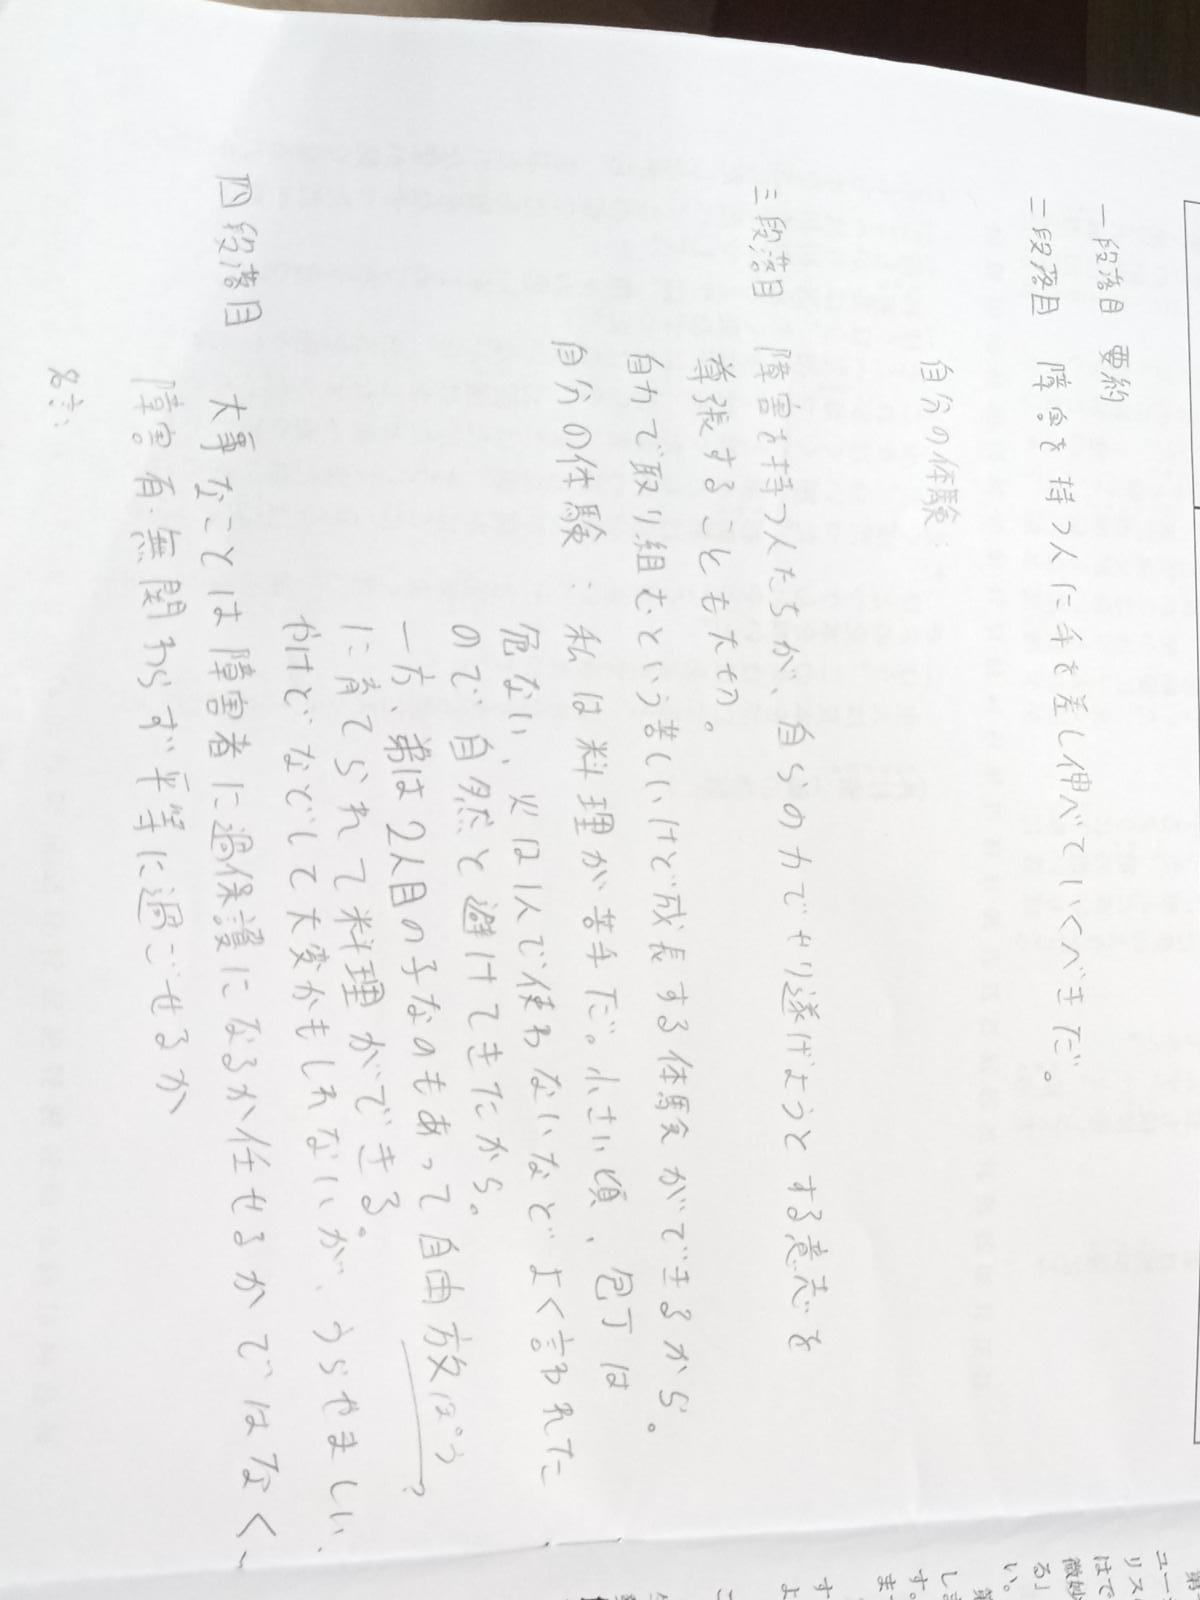 一段落目 要約
二段落目 障害を持つ人に手を差し伸べていくべきだ。
自分の体験:
三段落目 障害を持つ人たちが、自らの力でやり遂げようとする意志を
尊張することも大切。
自力で取り組むという苦しいけど成長する体験ができるから。
自分の体験:私は料理が苦手だ。小さい頃、包丁は
危ない、火は1人で使わないなどよく言われた
ので自然と避けてきたから。
一方、弟は2人目の子なのもあって自由放ほう?
に育てられて料理ができる。
やけどなどして大変かもしれないが、うらやましい、
四段落目 大事なことは障害者に過保護になるか任せるかではなく、
障害有・無関わらず平等に過ごせるか
名言:
第
ユー
リス
はで
微妙
る」
い。
第
し
す。
ま
す
よ
こ